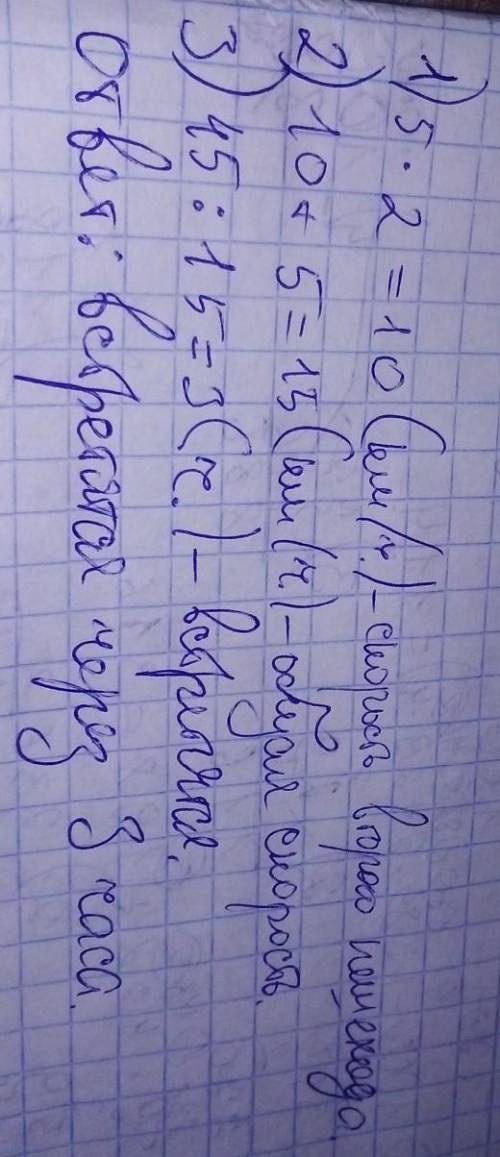 1) 5 · 2 = 10 (км/ч.) – скорость второго пешехода
2) 10 + 5 = 15 (км/ч.) – общая скорость.
3) 45 : 15 = 3 (ч.) – встретятся.
Ответ: встретятся через 3 часа.